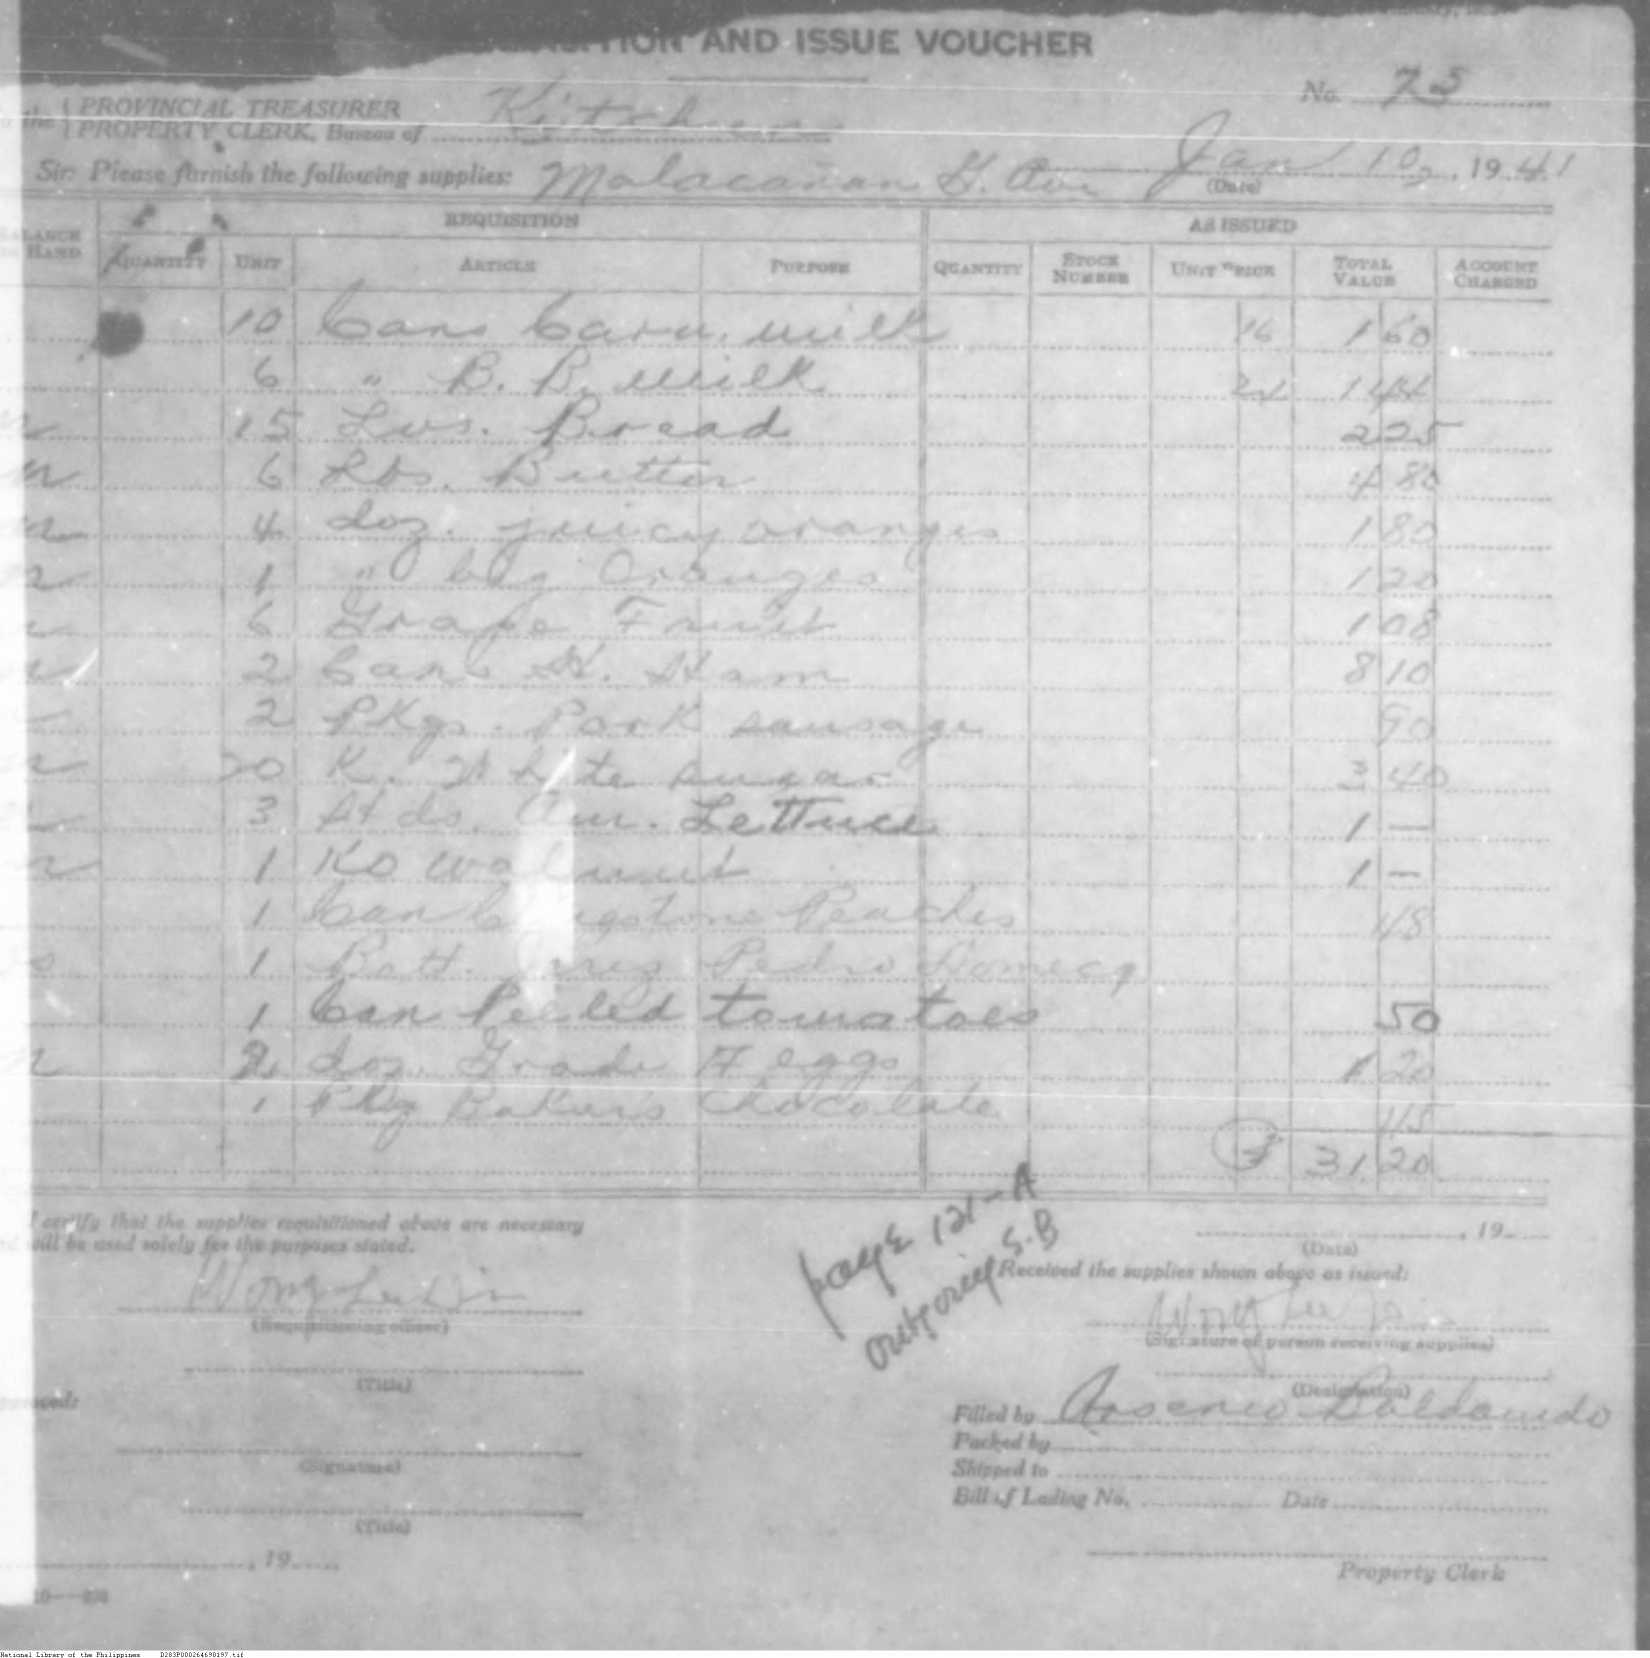 AND ISSUE VOUCHER
No. 73
the { PROVINCIAL TREASURER
PROPERTY CLERK, Bureau of Kitchen
Sir: Please furnish the following supplies: Malacañan Jan 10, 1941
(Date)
REQUISITION AS ISSUED
HAND QUANTITY UNIT ARTICLE PURPOSE QUANTITY STOCK NUMBER UNIT PRICE TOTAL VALUE ACCOUNT CHARGED
10 Cans Carn. milk 16 1 60
6 " B. B. milk 24 1 44
15 Lvs. Bread 2 25
6 Lbs. Butter 4 80
4 doz. juicy oranges 1 80
1 " big Oranges 1 20
6 Grape Fruit 1 08
2 Cans H. Ham 8 10
2 Pkgs. Pork sausage 90
20 K. White sugar 3 40
3 Hds. Am. Lettuce 1 —
1 Ko walnut 1 —
1 Can Clingstone Peaches 48
1 Bott. Pedro Domecq
1 Can Peeled tomatoes 50
2 doz. Grade A eggs 1 20
1 Pkg Baker's Chocolate 45
31 20
page 121-A
outgoing S.B
I certify that the supplies requisitioned above are necessary
will be used solely for the purposes stated.
, 19
(Date)
Received the supplies shown above as issued:
(Requisitioning officer)
(Signature of person receiving supplies)
(Title)
(Designation)
Filled by Arsenio
Packed by
Shipped to
(Signature)
Bill of Lading No. Date
(Title)
, 19
Property Clerk
National Library of the Philippines D283P000264698197.tif